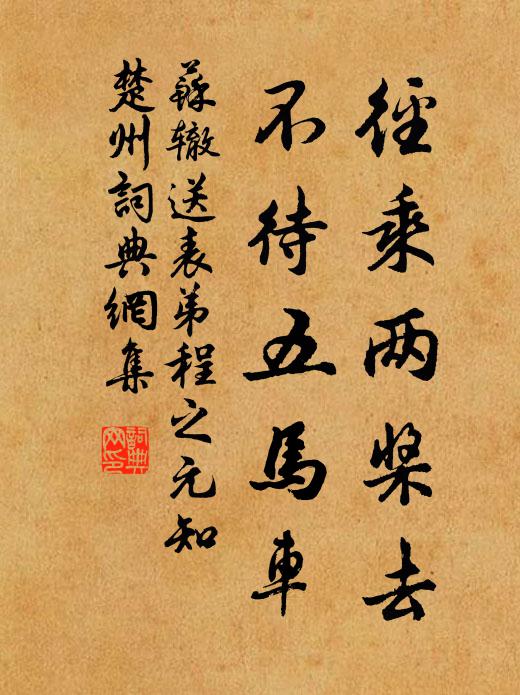 徑乘两槳去
不待五馬車
蘇辙送表弟程之元知
楚州詞典網集
詞典
网印